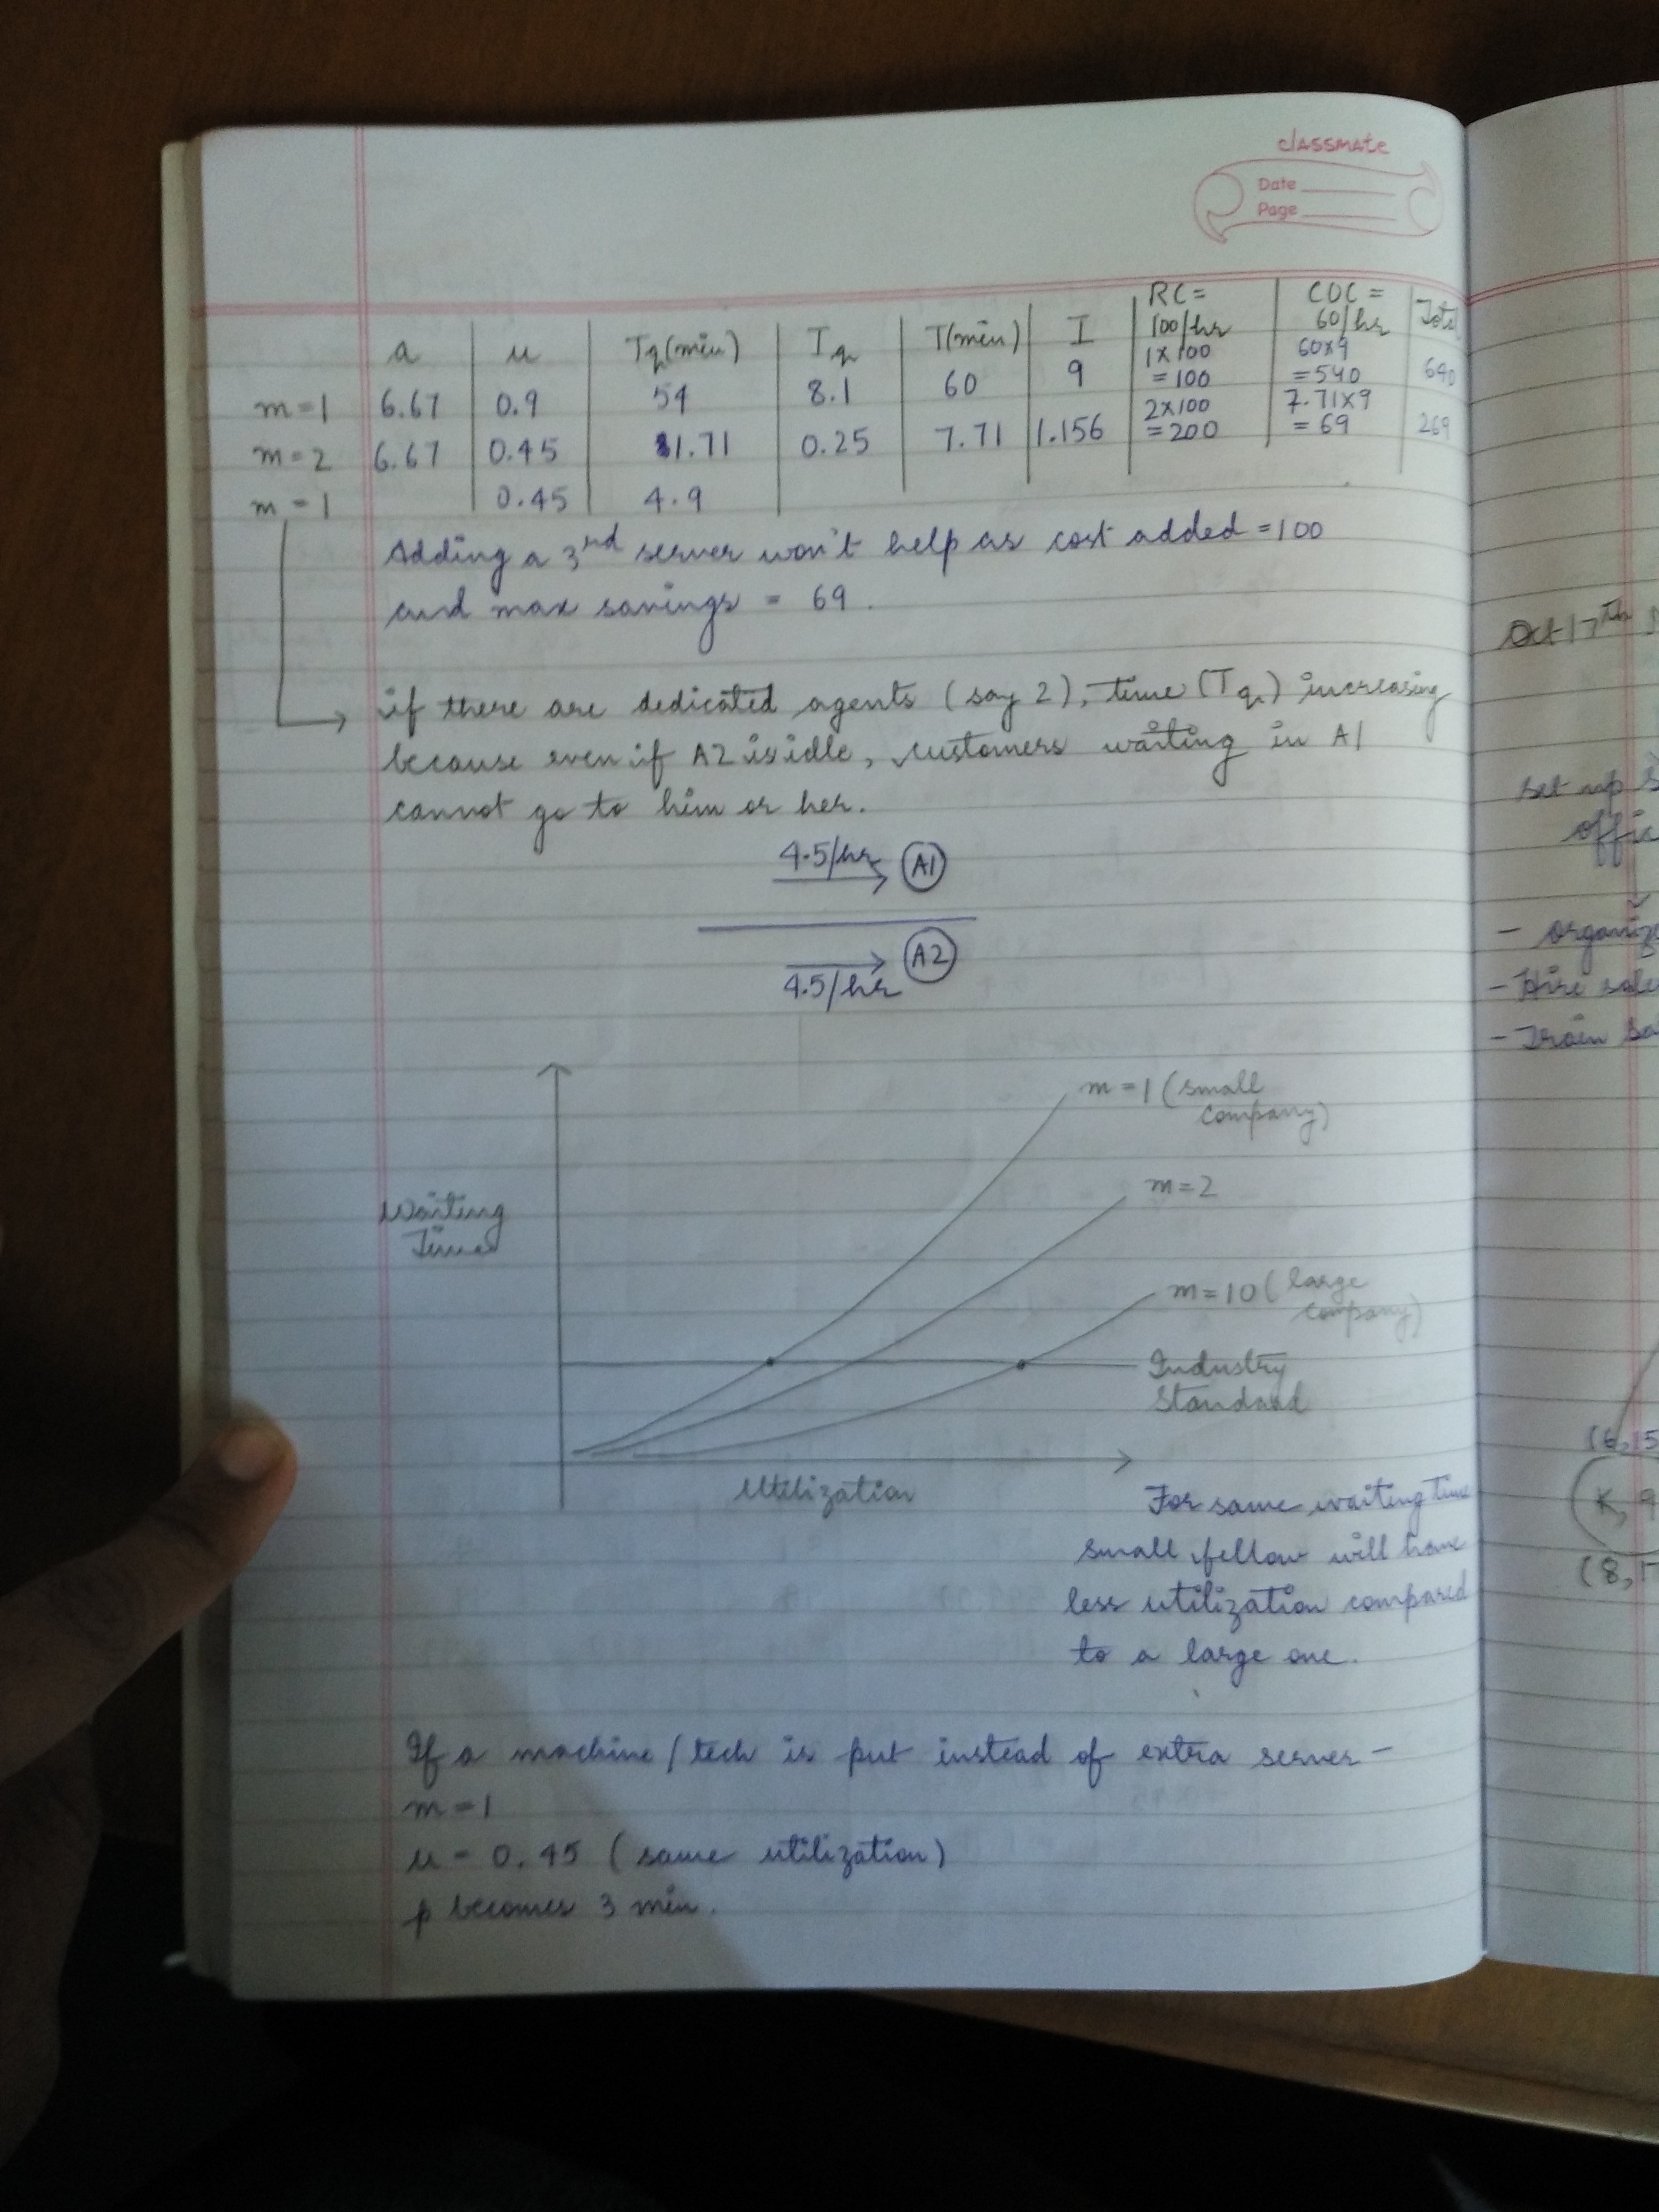 classmate
Date
Page
a u Tq(min) Iq T(min) I RC= 100/hr COC= 60/hr
m=1 6.67 0.9 54 8.1 60 9 1x100 =100 60x9 =540 640
m=2 6.67 0.45 1.71 0.25 7.71 1.156 2x100 =200 7.71x9 =69 269
m=1 0.45 4.9
Adding a 3rd server won't help as cost added =100
and max savings = 69.
if there are dedicated agents (say 2), time (Tq) increasing
because even if A2 is idle, customers waiting in A1
cannot go to him or her.
4.5/hr A1
A2
4.5/hr
m=1 (small
company)
m=2
Waiting
Time
m=10 (large
company)
Industry
Standard
Utilization
For same waiting time
small fellow will have
less utilization compared
to a large one.
If a machine/tech is put instead of extra server-
m=1
u = 0.45 (same utilization)
p becomes 3 min.
Oct 17th
set up
- Hire
- Train
(6,15
K, 9
(8,1